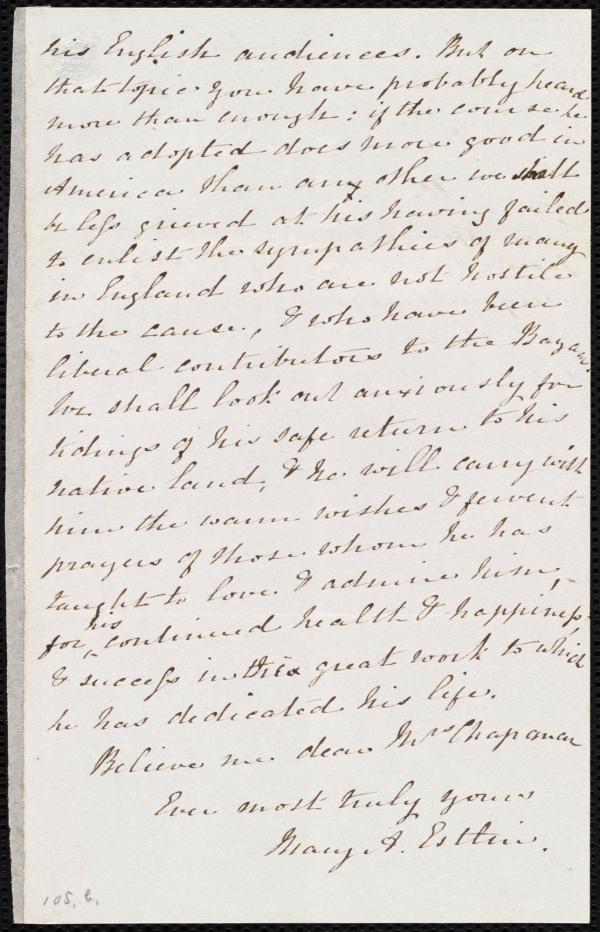 his English audiences. But on
that topic you have probably heard
more than enough: if the course he
has adopted does more good in
America than any other we shall
be less grieved at his having failed
to enlist the sympathies of many
in England who are not hostile
to the cause, & who have been
liberal contributors to the Bazaar.
We shall look out anxiously for
tidings of his safe return to his
native land, & he will carry with
him the warm wishes & fervent
prayers of those whom he has
taught to love & admire him,-
for his continued health & happiness,
& success in the great work to which
he has dedicated his life.
Believe me dear Mrs Chapman
Ever most truly yours
Mary A. Estlin.
105. b.